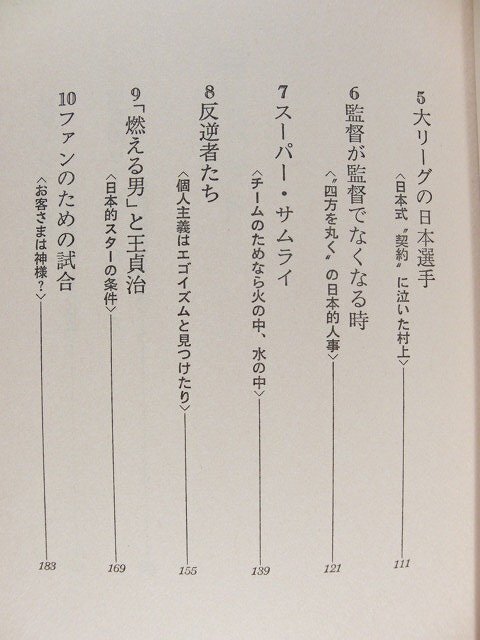 5 大リーグの日本選手
〈日本式〝契約〟に泣いた村上〉
111
6 監督が監督でなくなる時
〈〝四方を丸く〟の日本的人事〉
121
7 スーパー・サムライ
〈チームのためなら火の中、水の中〉
139
8 反逆者たち
〈個人主義はエゴイズムと見つけたり〉
155
9 「燃える男」と王貞治
〈日本的スターの条件〉
169
10 ファンのための試合
〈お客さまは神様?〉
183